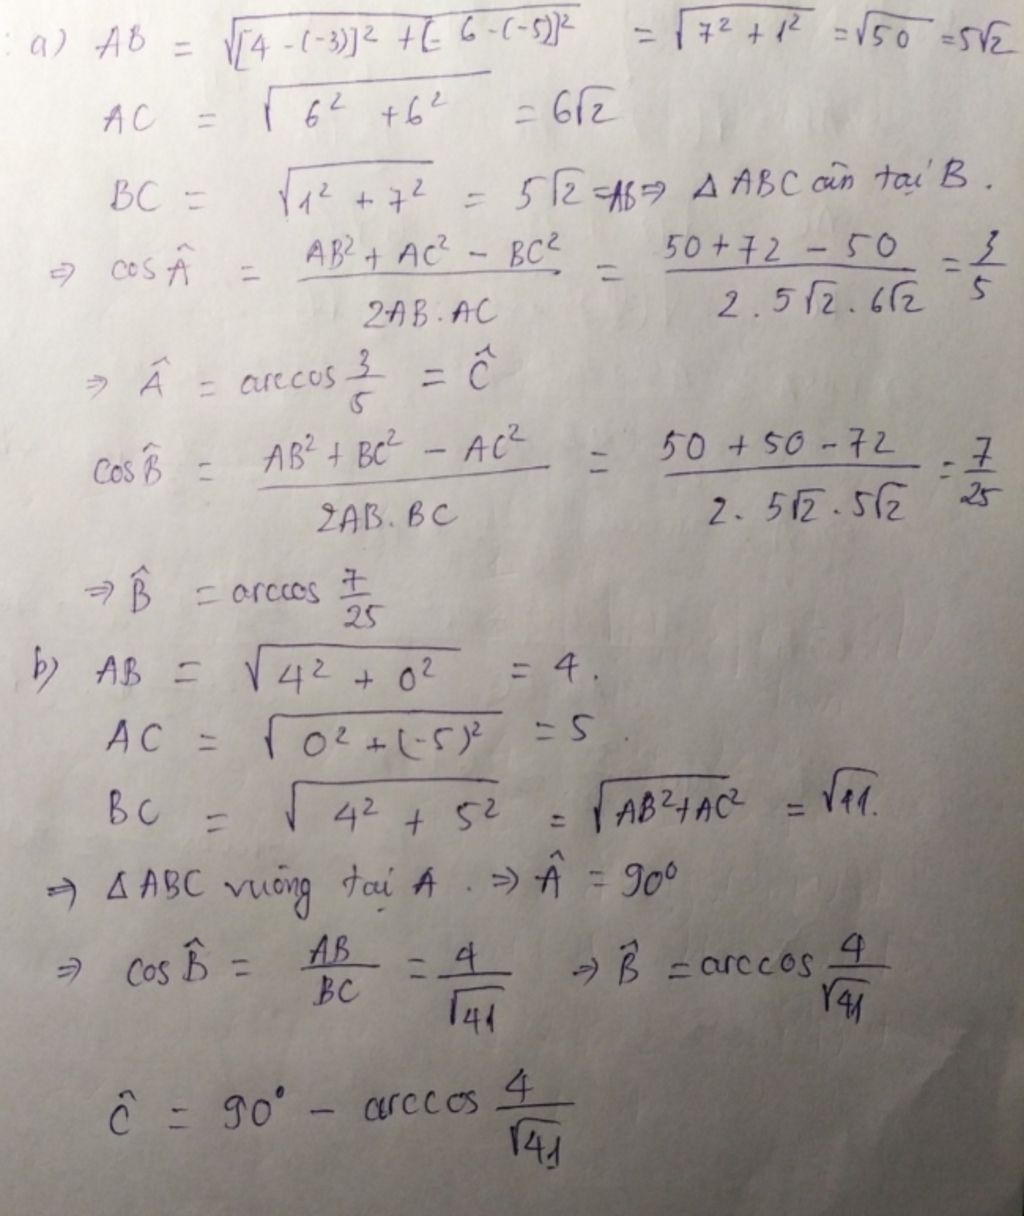 : a) AB = √([4 - (-3)]² + [- 6 - (-5)]²) = √(7² + 1²) = √50 = 5√2
AC = √(6² + 6²) = 6√2
BC = √(1² + 7²) = 5√2 = AB ⇒ Δ ABC cân tại B.
⇒ cos Â = (AB² + AC² - BC²)/(2AB.AC) = (50 + 72 - 50)/(2.5√2.6√2) = 3/5
⇒ Â = arccos 3/5 = Ĉ
cos B̂ = (AB² + BC² - AC²)/(2AB.BC) = (50 + 50 - 72)/(2.5√2.5√2) = 7/25
⇒ B̂ = arccos 7/25
b) AB = √(4² + 0²) = 4.
AC = √(0² + (-5)²) = 5.
BC = √(4² + 5²) = √(AB² + AC²) = √41.
⇒ Δ ABC vuông tại A. ⇒ Â = 90⁰
⇒ cos B̂ = AB/BC = 4/√41 ⇒ B̂ = arccos 4/√41
Ĉ = 90° - arccos 4/√41